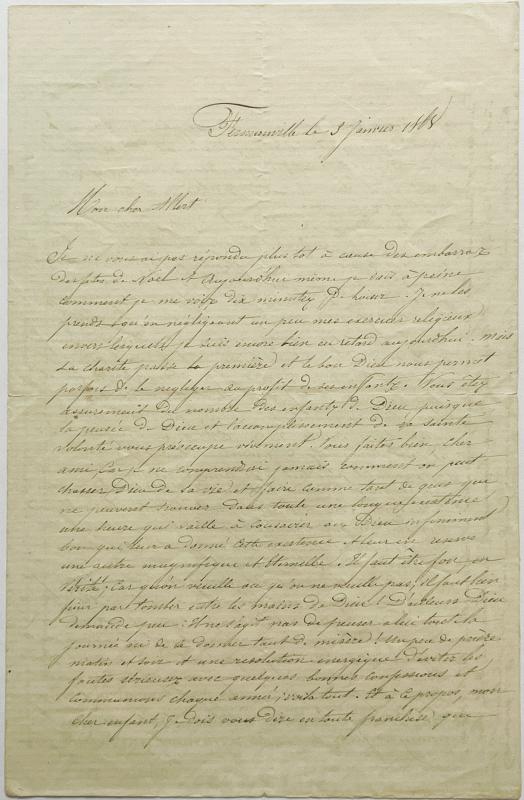 Fermanville le 5 janvier 1868
Mon cher Albert
Je ne vous ai pas répondu plus tôt à cause des embarras
des fêtes de Noël et aujourd'hui même je sais à peine
comment je me vois dix minutes de loisir. Je ne les
prends qu'en négligeant un peu mes exercices religieux
envers lesquels je suis encore bien en retard aujourd'hui. Mais
la charité passe la première et le bon Dieu nous permet
parfois de la négliger au profit de ses enfants. Vous êtes
assurément du nombre des enfants de Dieu puisque
la pensée de Dieu et l'accomplissement de sa sainte
volonté vous préoccupe vivement. Vous faites bien, cher
ami, car je ne comprendrai jamais comment on peut
chasser Dieu de sa vie et faire comme tant de gens qui
ne peuvent trouver dans toute une longue existence
une heure qui vaille à consacrer au Dieu infiniment
bon qui leur a donné cette existence et leur en réserve
une autre magnifique et éternelle. Il faut être fou en
vérité; car qu'on veuille ou qu'on ne veuille pas, il faut bien
finir par tomber entre les mains de Dieu! D'ailleurs Dieu
demande peu: Il ne s'agit pas de penser à lui toute la
journée ni de se donner tant de misère! Un peu de prière
matin et soir et une résolution énergique d'éviter les
fautes sérieuses avec quelques bonnes confessions et
communions chaque année; voilà tout. Et à ce propos, mon
cher enfant, je dois vous dire en toute franchise que